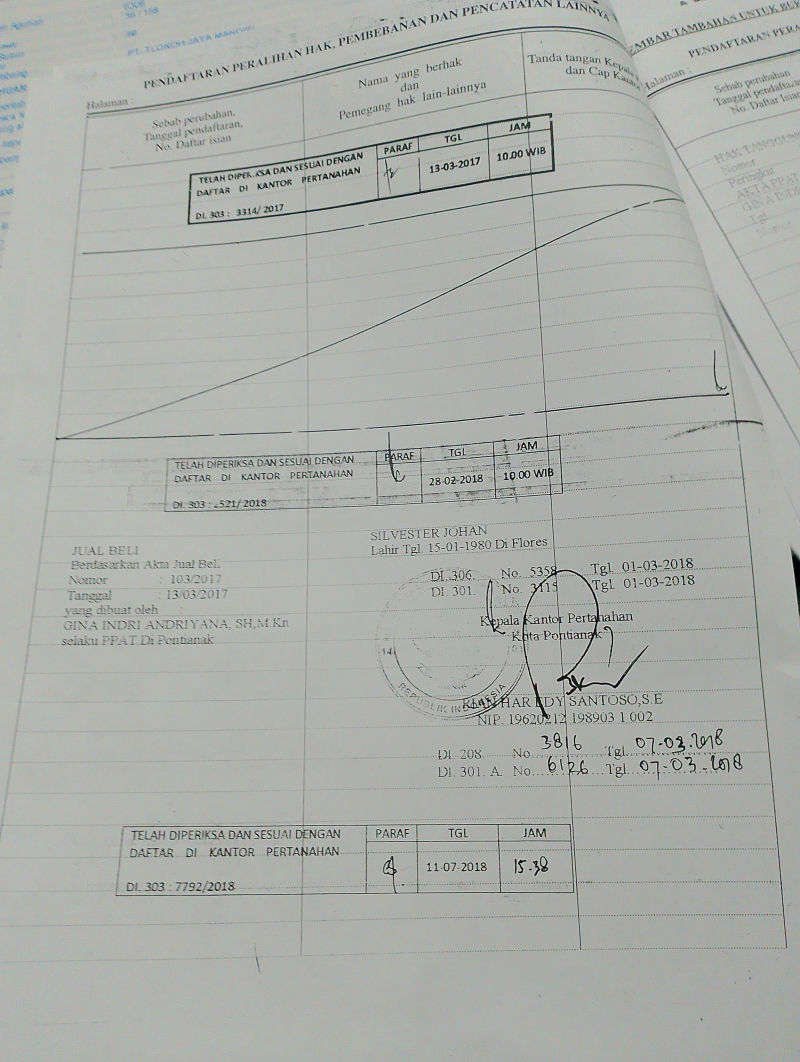 36 / 158
36
PT. TLOKOH JAYA MANDIRI
PENDAFTARAN PERALIHAN HAK, PEMBEBANAN DAN PENCATATAN LAINNYA
Halaman :
Sebab perubahan,
Tanggal pendaftaran,
No. Daftar isian
Nama yang berhak
dan
Pemegang hak lain-lainnya
Tanda tangan Kepala
dan Cap Kantor
TELAH DIPERIKSA DAN SESUAI DENGAN
DAFTAR DI KANTOR PERTANAHAN
DI. 303 : 3314/ 2017
PARAF TGL JAM
13-03-2017 10.00 WIB
TELAH DIPERIKSA DAN SESUAI DENGAN
DAFTAR DI KANTOR PERTANAHAN
DI. 303 : 2521/ 2018
PARAF TGL JAM
28-02-2018 10.00 WIB
JUAL BELI
Berdasarkan Akta Jual Beli.
Nomor : 103/2017
Tanggal : 13/03/2017
yang dibuat oleh :
GINA INDRI ANDRIYANA, SH,M.Kn
selaku PPAT Di Pontianak
SILVESTER JOHAN
Lahir Tgl. 15-01-1980 Di Flores
DI. 306. No. 5358 Tgl. 01-03-2018
DI. 301. No. 3115 Tgl. 01-03-2018
Kepala Kantor Pertanahan
Kota Pontianak
REPUBLIK INDONESIA
EDY SANTOSO,S.E
NIP. 19620212 198903 1 002
DI. 208. No. 3816 Tgl. 07-03-2018
DI. 301. A. No. 6126 Tgl. 07-03-2018
TELAH DIPERIKSA DAN SESUAI DENGAN
DAFTAR DI KANTOR PERTANAHAN
DI. 303 : 7792/2018
PARAF TGL JAM
11-07-2018 15.38
LEMBAR TAMBAHAN UNTUK BU
PENDAFTARAN PERA
Halaman :
Sebab perubahan
Tanggal pendaftaran
No. Daftar Isian
HAK TANGGUN
Nomor
Peringkat
AKTA PPAT
GINA INDRI
Tgl
Nomor